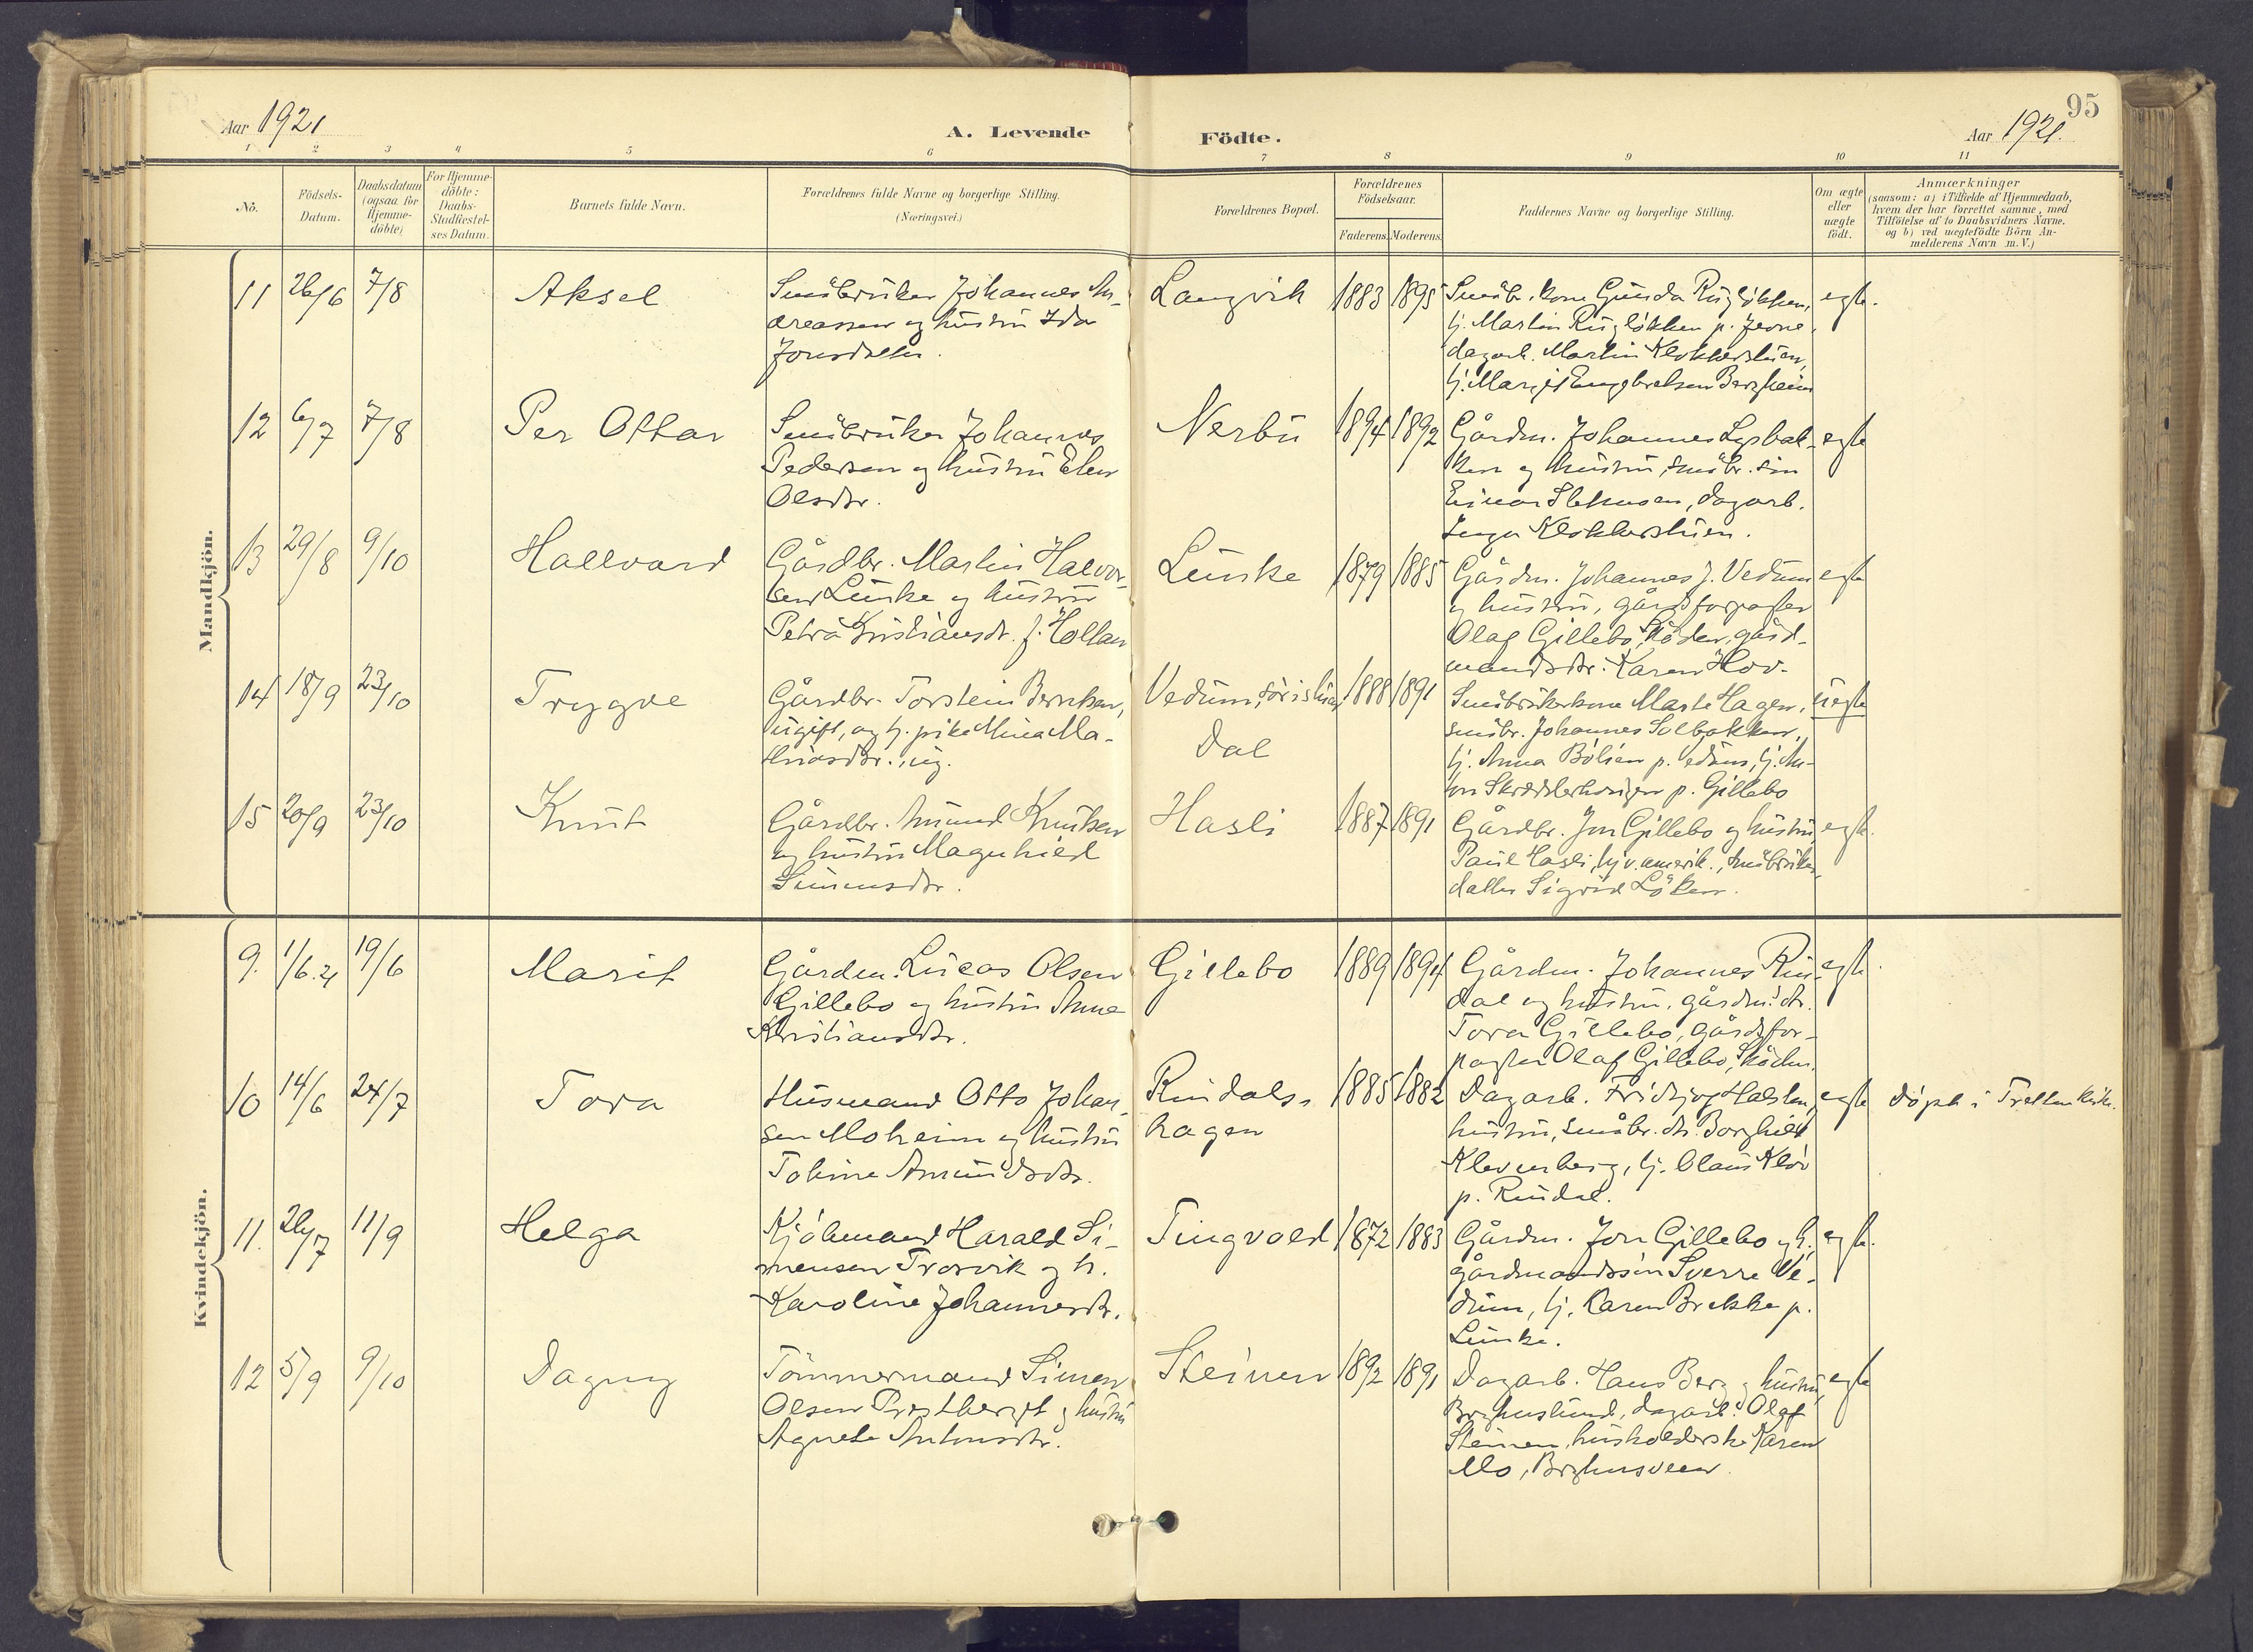 95
Aar 1921
A. Levende
Födte.
Aar 1921.
1 2 3 4 5 6 7 8 9 10 11
No.
Födsels-
Datum.
Daabsdatum
(ogsaa for
Hjemme-
döbte)
For Hjemme-
döbte:
Daabs-
Stadfæstel-
ses Datum.
Barnets fulde Navn.
Forældrenes fulde Navne og borgerlige Stilling.
(Næringsvei.)
Forældrenes Bopæl.
Forældrenes
Födselsaar.
Faderens. Moderens.
Faddernes Navne og borgerlige Stilling.
Om ægte
eller
uægte
födt.
Anmærkninger
(saasom: a) i Tilfælde af Hjemmedaab,
hvem der har forrettet samme, med
Tilföielse af to Daabsvidners Navne.
og b) ved uægtefödte Börn An-
melderens Navn m. V.)
Mandkjön.
11 26/6 7/8 Aksel
Småbruker Johannes An-
dreassen og hustru Ida
Jonsdatter.
Langvik 1883 1895
Småbr. kone Gunda Rugløkken,
tj. Martin Rugløkken p.
dagarb. Martin Klokkerstuen,
tj. Margit Engebretsen Bergheim
egte.
12 6/7 7/8 Per Ottar
Småbruker Johannes
Pedersen og hustru Elen
Olsdtr.
Nerbu 1894 1892
Gårdm. Johannes Lysbak-
ken og hustru, småbr. søn
Einar Slethusen, dagarb.
Inga Klokkerstuen.
egte
13 29/8 9/10 Hallvard
Gårdbr. Martin Halvor-
sen Lunke og hustru
Petra Kristiansdr. f. Holtan
Lunke 1879 1885
Gårdm. Johannes J. Vedum
og hustru, gårdsforpagter
Olaf Gillebo, gård-
mandsdtr. Karen Hov.
egte
14 18/9 23/10 Trygve
Gårdbr. Torstein Berntsen,
ugift, og tj. pike Mina Ma-
thiasdtr. ug.
Vedum,
Dal
1888 1891
Småbrukerkone Marte Hagen,
småbr. Johannes Solbakken,
tj. Anna Bølien p. Vedum, tj. An-
ton p. Gillebo
uegte
15 20/9 23/10 Knut
Gårdbr. Amund Knutsen
og hustru Magnhild
Simensdtr.
Hasli 1887 1891
Gårdbr. Jon Gillebo og hustru,
Paul Hasli, hjv. amerik., småbruker-
datter Sigrid Løken.
egte.
Kvindekjön.
9. 1/6.21 19/6 Marit
Gårdm. Lucas Olsen
Gillebo og hustru Anna
Kristiansdtr.
Gillebo 1889 1894
Gårdm. Johannes Rin-
dal og hustru, gårdm. dtr.
Tora Gillebo, gårdsfor-
pagter Olaf Gillebo,
egte.
10 14/6 24/7 Tora
Husmand Otto Johan-
sen Moheim og hustru
Tohine Amundsdtr.
Rindals-
hagen
1885 1882
Dagarb. Fridtjog Halsten,
hustru, småbr. dtr. Borghild
Klevenberg, tj. Olaus Kløv
p. Rindal.
egte
døpt i Tretten kirke.
11. 26/7 11/9 Helga
Kjøbmand Harald Si-
mensen Trosvik og h.
Karoline Johannesdtr.
Tingvold 1872 1883
Gårdm. Jon Gillebo og h.,
gårdmandssøn Sverre Ve-
dum, tj. Karen Brekke p.
Lunke.
egte.
12 5/9 9/10 Dagny
Tømmermand Simen
Olsen Prestberget og hustru
Agnete Antonsdtr.
Steinen 1892 1891
Dagarb. Hans Berg og hustru,
dagarb. Olaf
Steinen, husholderske Karen
Mo,
egte